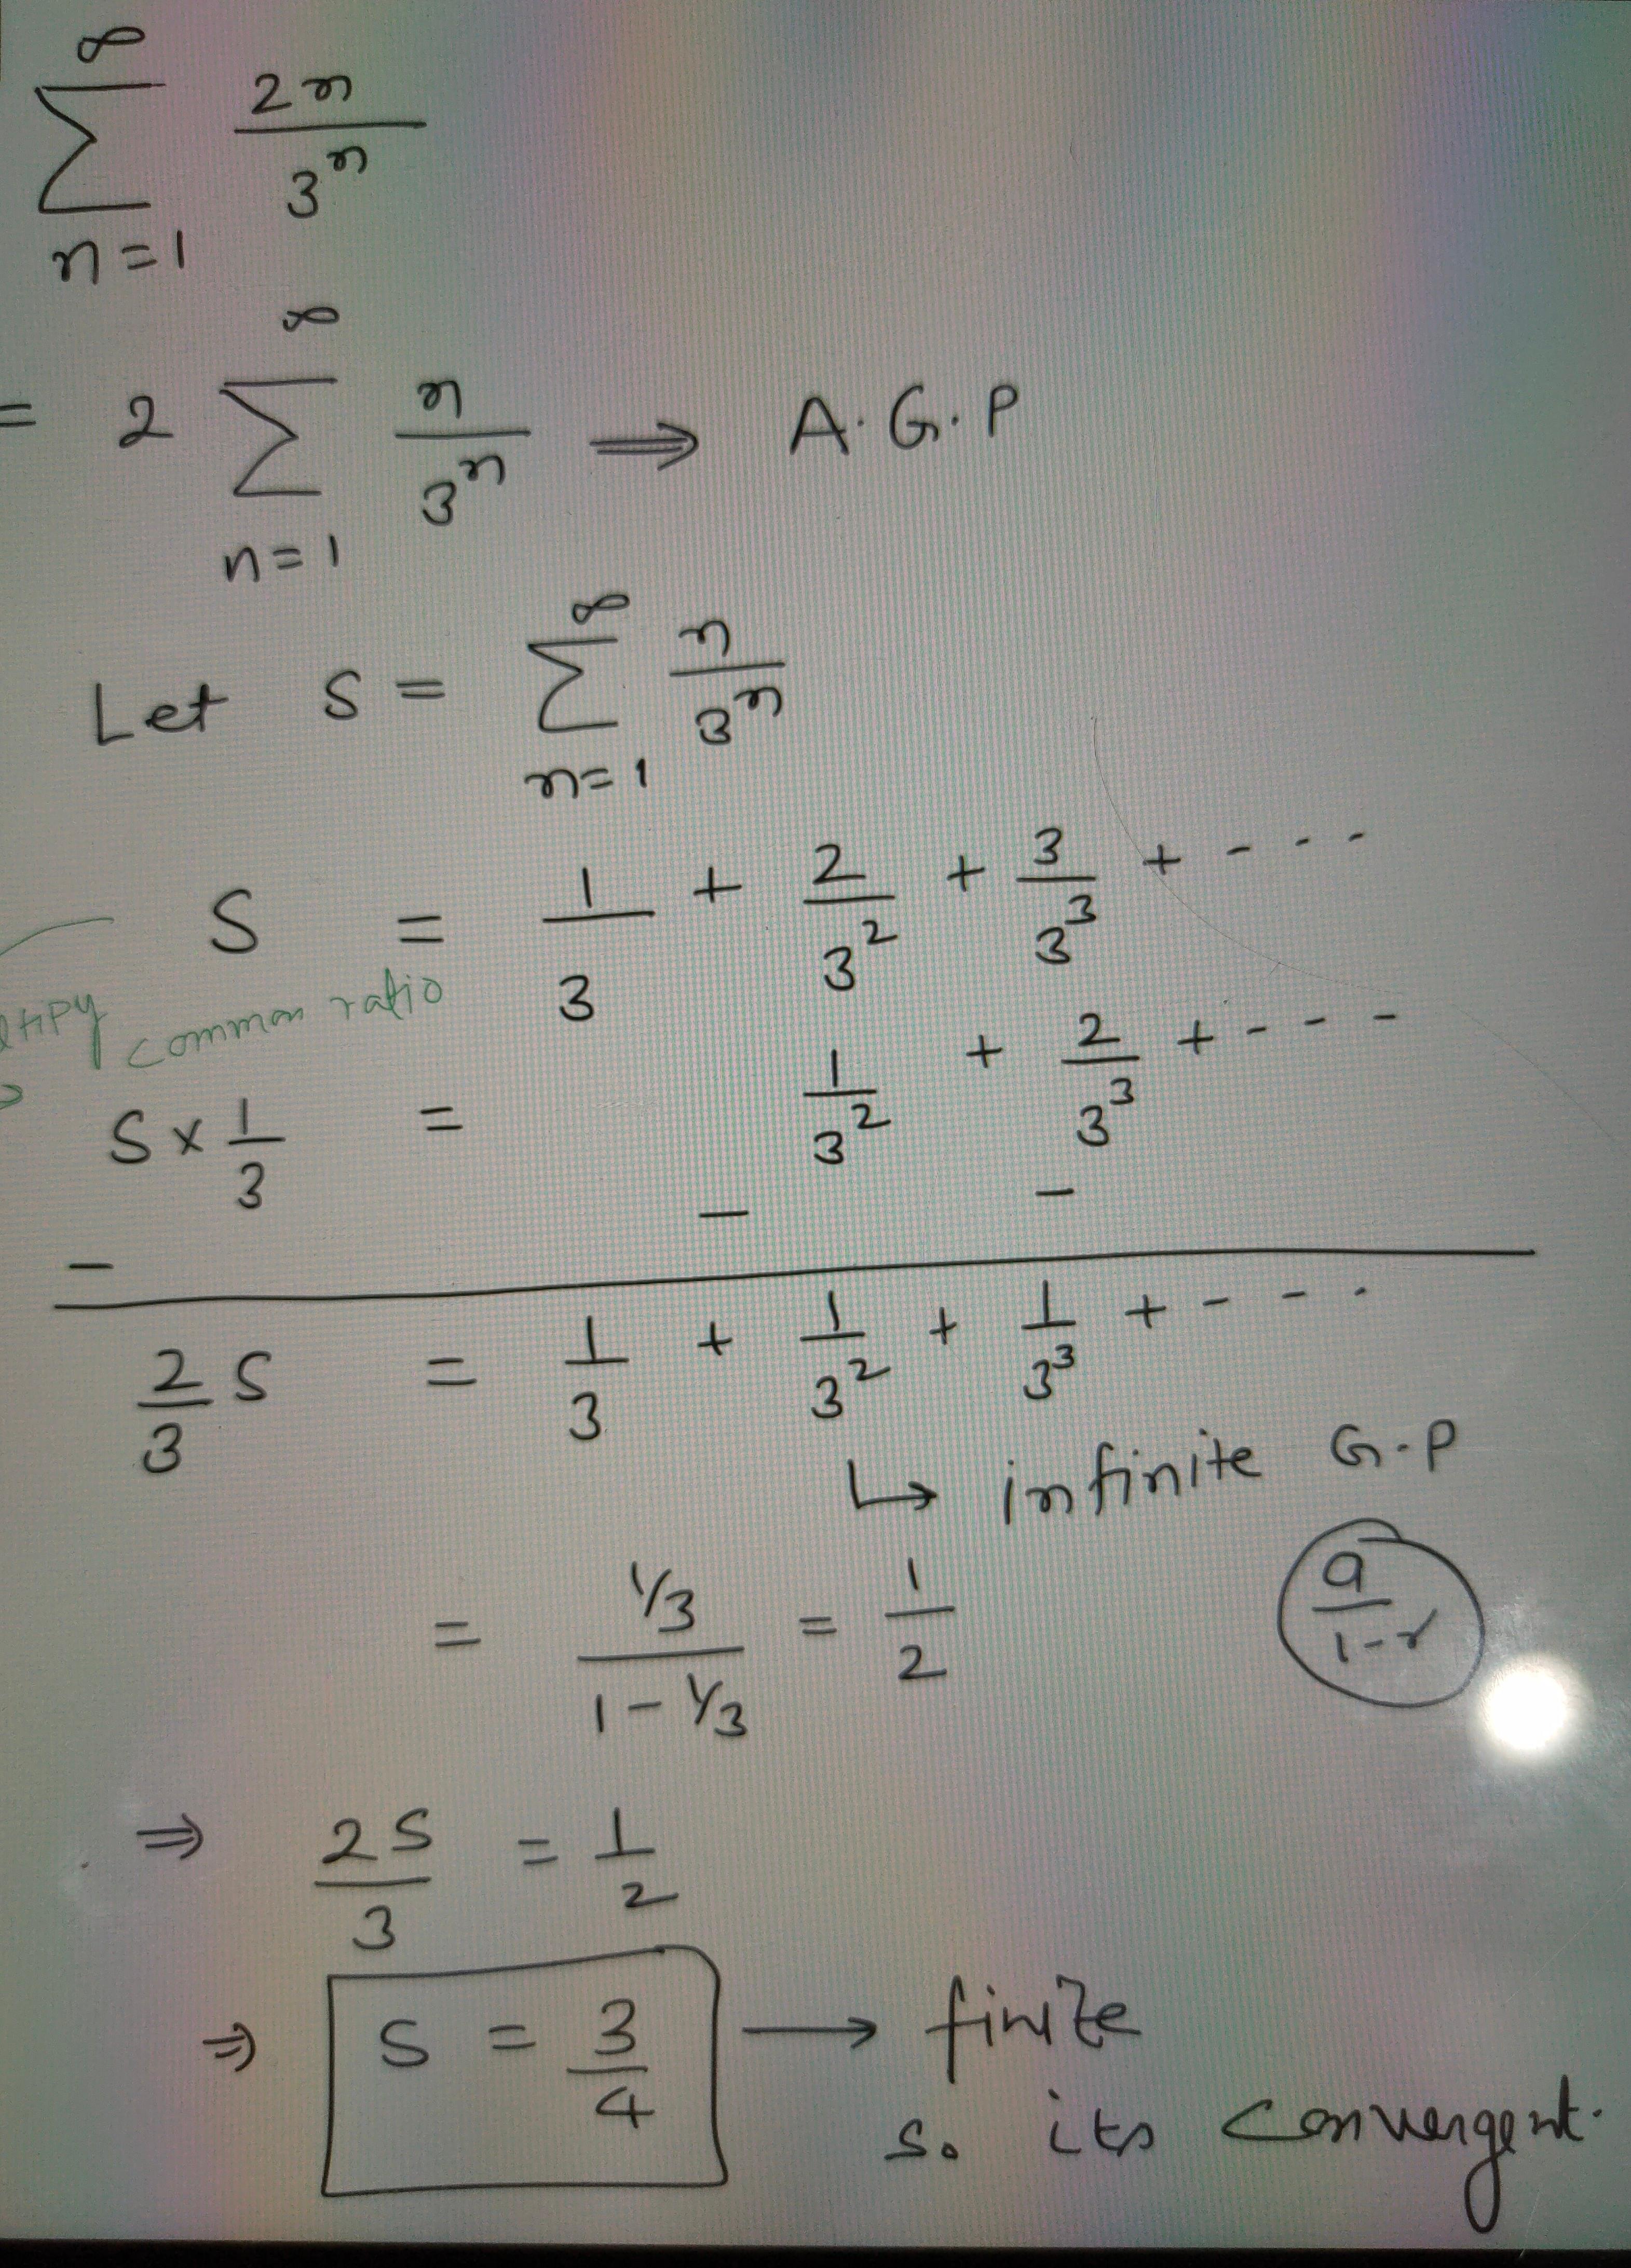 ∞
∑ 2n/3^n
n=1
∞
= 2 ∑ n/3^n ⟹ A.G.P
n=1
∞
Let S = ∑ n/3^n
n=1
S = 1/3 + 2/3^2 + 3/3^3 + - - - -
common ratio
S × 1/3 = 1/3^2 + 2/3^3 + - - - -
− − −
2/3 S = 1/3 + 1/3^2 + 1/3^3 + - - - .
↳ infinite G.P
= (1/3)/(1 - 1/3) = 1/2 a/(1-r)
⇒ 2S/3 = 1/2
⇒ S = 3/4 → finite
so its convergent.